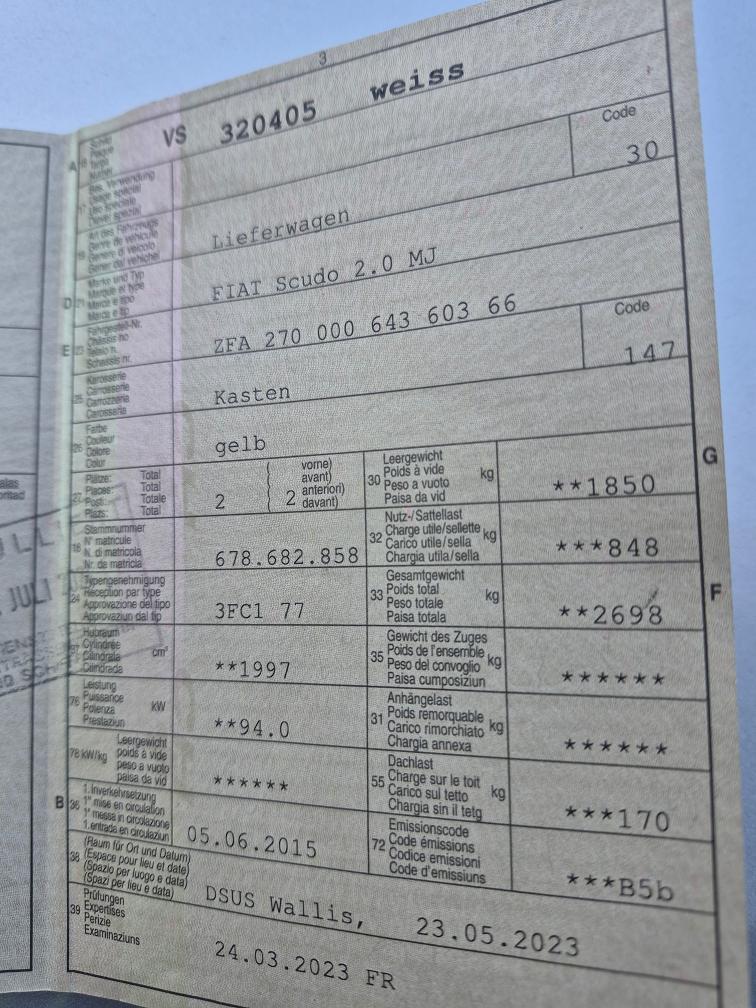 3
A 15 Schild
Plaque
Targa
Numer
VS 320405 weiss
17 Bes. Verwendung
Usage spécial
Uso speciale
Diever spezial
Code
30
19 Art des Fahrzeugs
Genre de véhicule
Genere di veicolo
Gener dal vehichel
Lieferwagen
D 21 Marke und Typ
Marque et type
Marca e tipo
Marca e tip
FIAT Scudo 2.0 MJ
E 23 Fahrgestell-Nr.
Châssis no
Telaio n.
Schassis nr.
ZFA 270 000 643 603 66
25 Karosserie
Carrosserie
Carrozzeria
Carossaria
Kasten
Code
147
26 Farbe
Couleur
Colore
Colur
gelb
27 Plätze: Total
Places: Total
Posti: Totale
Plazs: Total
2 2
vorne)
avant)
anteriori)
davant)
G
30 Leergewicht
Poids à vide
Peso a vuoto
Paisa da vid
kg
**1850
18 Stammnummer
N° matricule
N. di matricola
Nr. da matricla
678.682.858
32 Nutz-/Sattellast
Charge utile/sellette
Carico utile/sella
Chargia utila/sella
kg
***848
24 Typengenehmigung
Réception par type
Approvazione del tipo
Approvaziun dal tip
3FC1 77
F
33 Gesamtgewicht
Poids total
Peso totale
Paisa totala
kg
**2698
37 Hubraum
Cylindrée
Cilindrata
Cilindrada
cm³
**1997
35 Gewicht des Zuges
Poids de l'ensemble
Peso del convoglio
Paisa cumposiziun
kg
******
76 Leistung
Puissance
Potenza
Prestaziun
kW
**94.0
31 Anhängelast
Poids remorquable
Carico rimorchiato
Chargia annexa
kg
******
78 kW/kg
Leergewicht
poids à vide
peso a vuoto
paisa da vid
******
55 Dachlast
Charge sur le toit
Carico sul tetto
Chargia sin il tetg
kg
***170
B 36 1. Inverkehrsetzung
1re mise en circulation
1a messa in circolazione
1. entrada en circulaziun
05.06.2015
72 Emissionscode
Code émissions
Codice emissioni
Code d'emissiuns
***B5b
38 (Raum für Ort und Datum)
(Espace pour lieu et date)
(Spazio per luogo e data)
(Spazi per lieu e data)
DSUS Wallis, 23.05.2023
39 Prüfungen
Expertises
Perizie
Examinaziuns
24.03.2023 FR
JULI